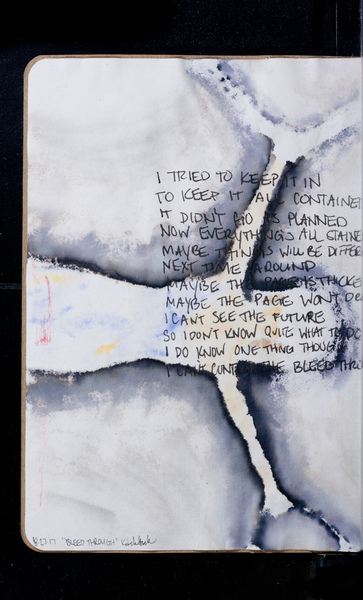 I TRIED TO KEEP IT IN
TO KEEP IT ALL CONTAINE
IT DIDN'T GO AS PLANNED
NOW EVERYTHING'S ALL STAINE
MAYBE THINGS WILL BE DIFFE
NEXT TIME AROUND
MAYBE THE PAGE IS THICKE
MAYBE THE PAGE WON'T D
I CAN'T SEE THE FUTURE
SO I DON'T KNOW QUITE WHAT TO DO
I DO KNOW ONE THING THOUGH
I CAN'T CONTROL THE BLEED THRO
"BLEED THROUGH"